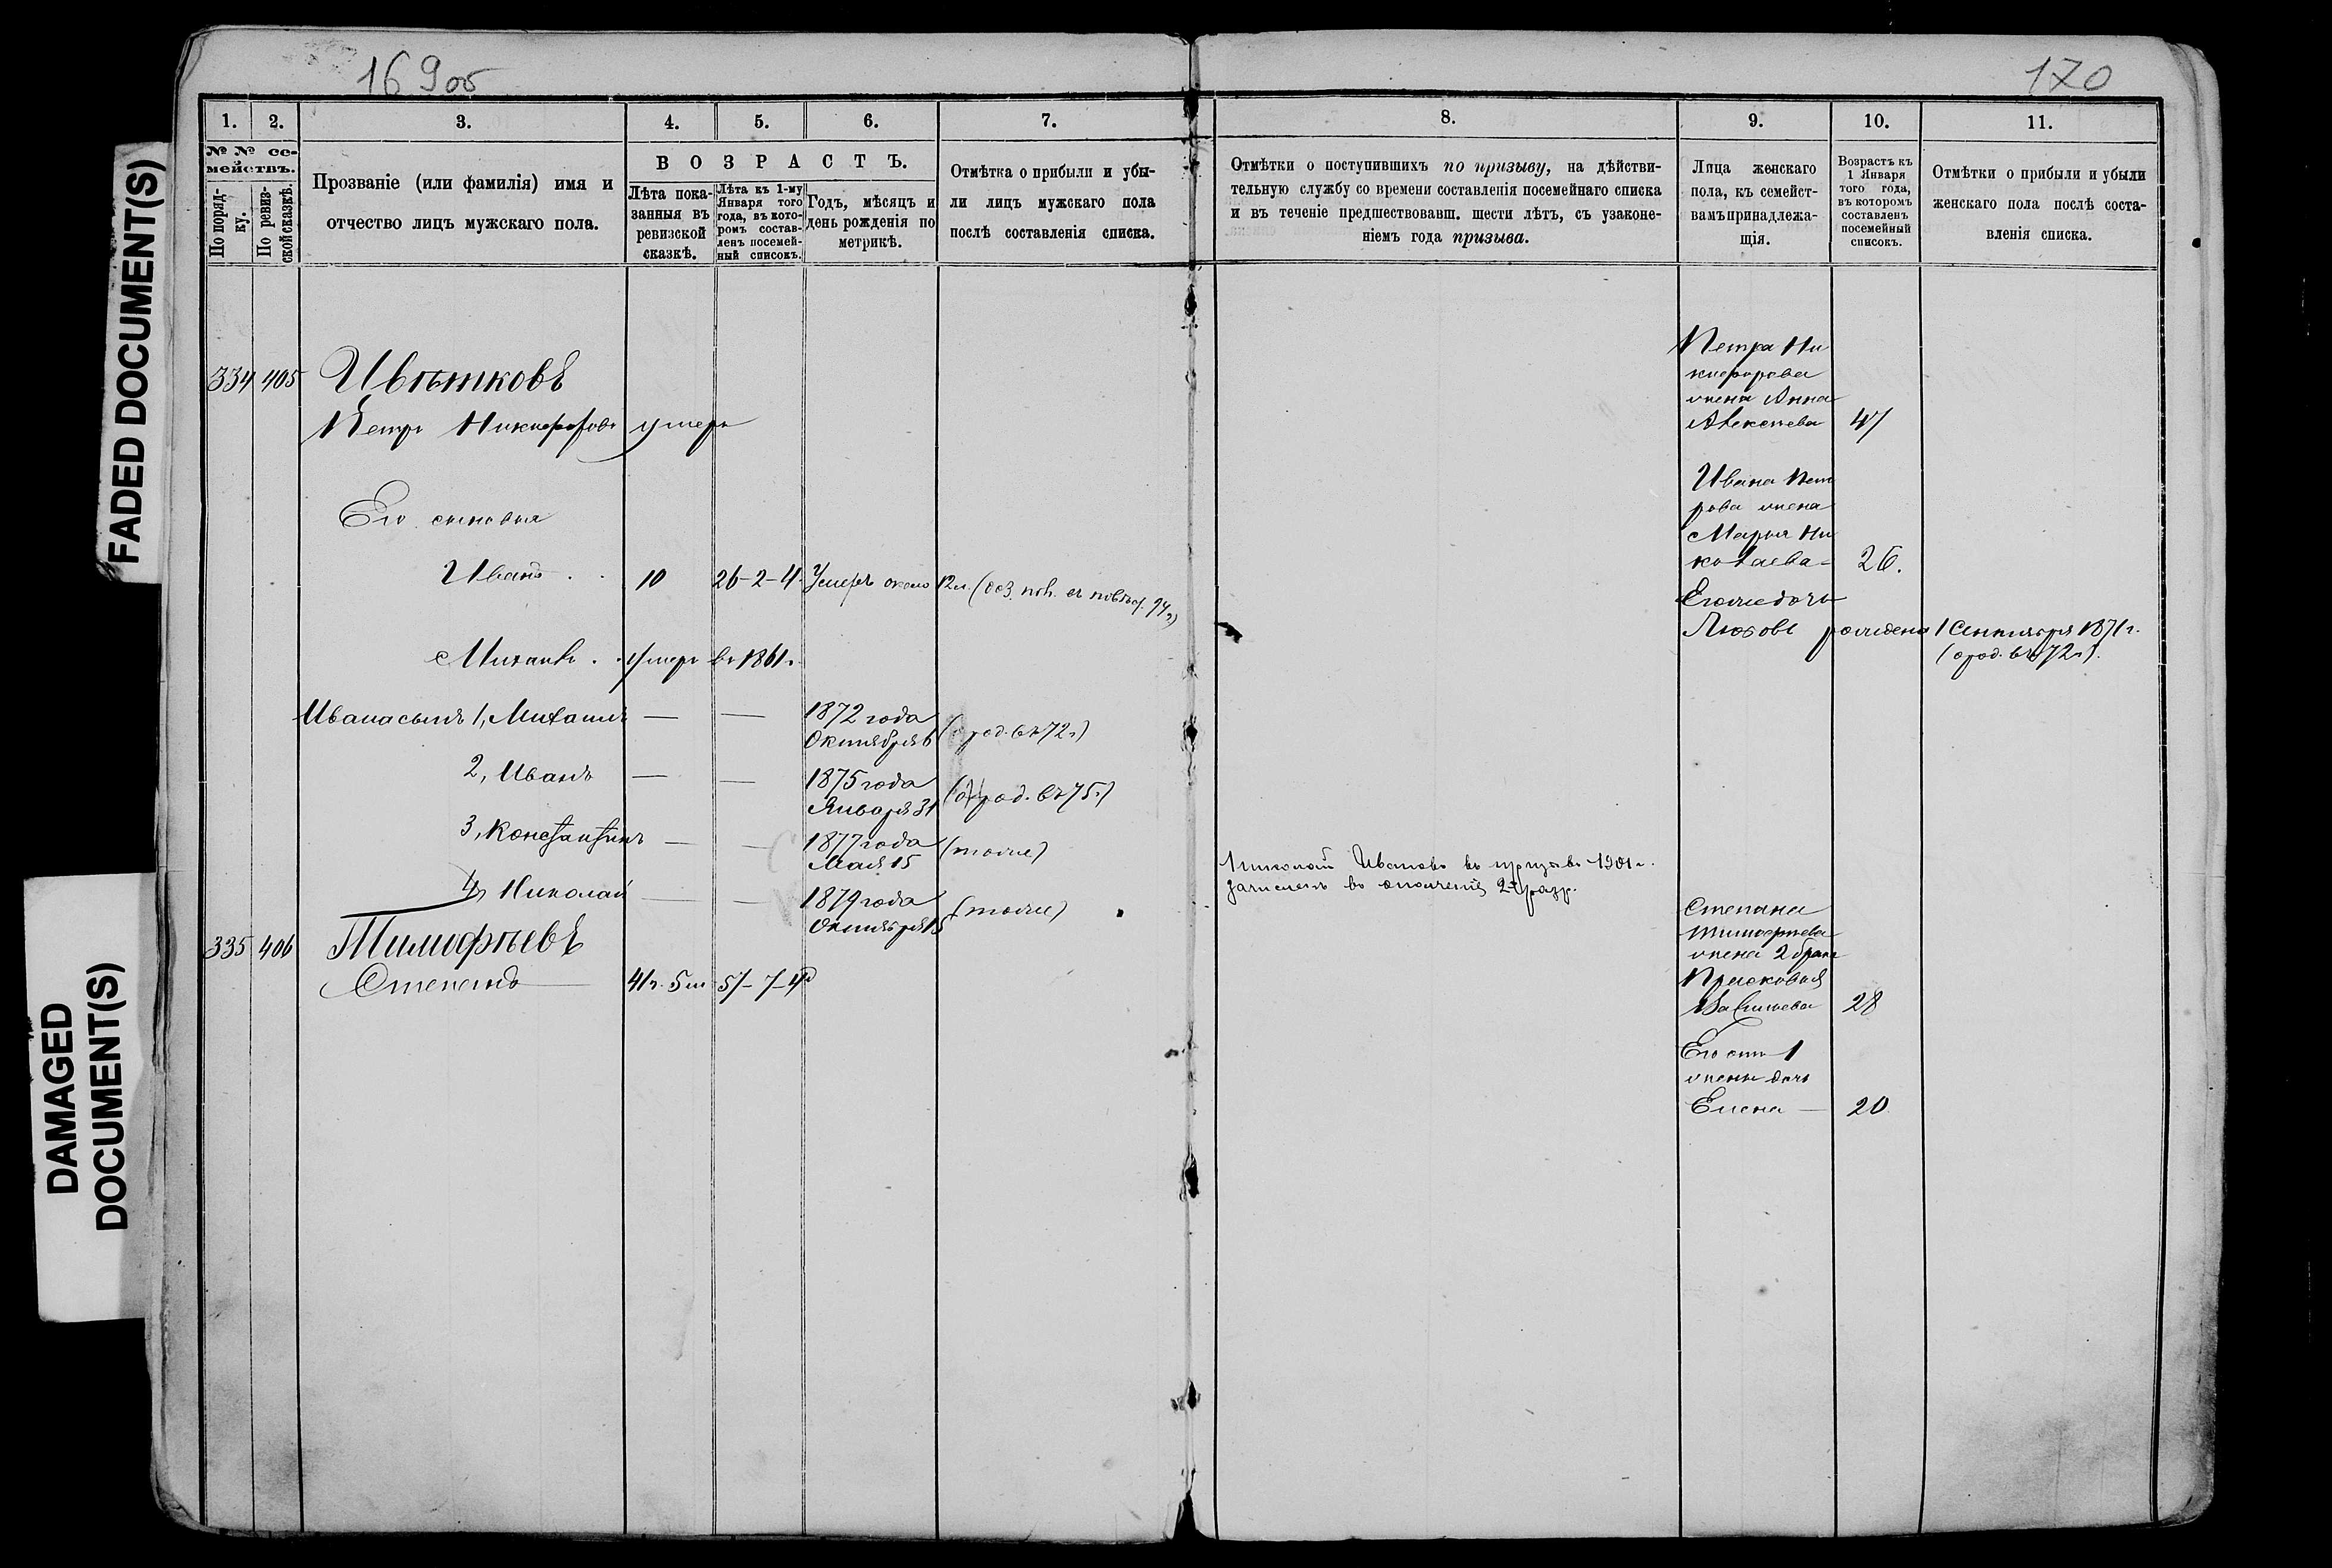 FADED DOCUMENT(S)
DAMAGED
DOCUMENT(S)
169 об
170
1.
2.
3.
4.
5.
6.
7.
8.
9.
10.
11.
№ № се-
мействъ.
По поряд-
ку.
По ревиз-
ской сказкѣ.
Прозваніе (или фамилія) имя и
отчество лицъ мужскаго пола.
ВОЗРАСТЪ.
Лѣта пока-
занныя въ
ревизской
сказкѣ.
Лѣта къ 1-му
Января того
года, въ кото-
ромъ состав-
ленъ посемей-
ный списокъ.
Годъ, мѣсяцъ и
день рожденія по
метрикѣ.
Отмѣтка о прибыли и убы-
ли лицъ мужскаго пола
послѣ составленія списка.
Отмѣтки о поступившихъ по призыву, на дѣйстви-
тельную службу со времени составленія посемейнаго списка
и въ теченіе предшествовавш. шести лѣтъ, съ узаконе-
ніемъ года призыва.
Лица женскаго
пола, къ семейст-
вамъ принадлежа-
щія.
Возрастъ къ
1 Января
того года,
въ которомъ
составленъ
посемейный
списокъ.
Отмѣтки о прибыли и убыли
женскаго пола послѣ соста-
вленія списка.
334 405 Цвѣтковъ
Петръ Никифоровъ умеръ
Его сыновья
Иванъ . . 10 26-2-4 Умеръ около 12 л.
Михаилъ . . умеръ въ 1861 г.
Ивана сынъ 1, Михаилъ — — 1872 года
Октября 6 (о род. въ 72 г)
2, Иванъ — — 1875 года
Января 31 (о род. въ 75 г)
3, Константинъ — — 1877 года
Мая 15 (тоже)
4, Николай — — 1879 года
Октября 15 (тоже)
335 406 Тимофѣевъ
Степанъ 41 г. 5 м 57-7-4
Николай Ивановъ въ призывъ 1901 г.
зачисленъ въ ополченіе 2 разр.
Петра Ни
кифорова
жена Анна
Алексѣева 47
Ивана Пет
рова жена
Марья Ни
колаева - 26.
Его же дочь
Любовь рождена 1 Сентября 1871 г.
(о род. въ 72 г).
Степана
Тимофѣева
жена 2 брака
Прасковья
Васильева 28
Его отъ 1
жены дочь
Елена — 20